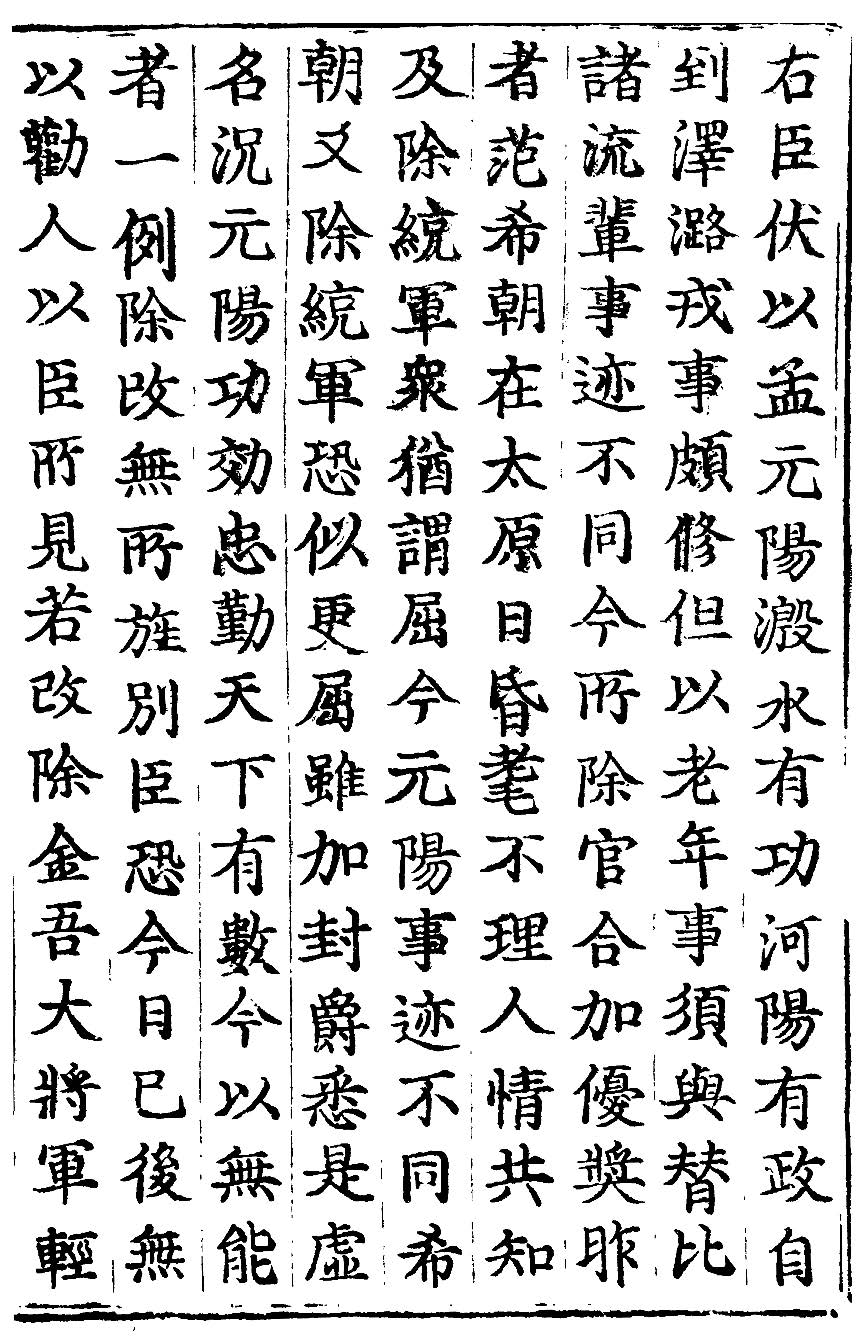 右臣伏以孟元陽溵水有功河陽有政自
到澤潞戎事頗修但以老年事須與替比
諸流輩事迹不同今所除官合加優奬昨
者范希朝在太原日昏耄不理人情共知
及除統軍衆猶謂屈今元陽事迹不同希
朝又除統軍恐似更屈雖加封爵悉是虛
名況元陽功効忠勤天下有數今以無能
者一例除改無所旌別臣恐今日已後無
以勸人以臣所見若改除金吾大將軍輕